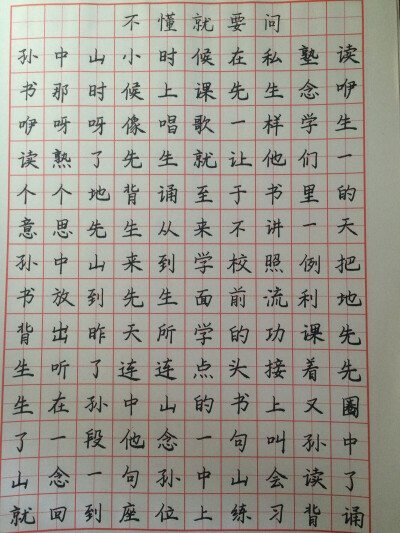 不懂就要问
孙中山小时候在私塾读
书那时候上课先生念咿
咿呀呀像唱歌一样学生
读熟了先生就让他们一
个个地背诵至于书里的
意思先生从来不讲一天
孙中山来到学校照例把
书放到先生面前流利地
背出昨天所学的功课先
生听了连连点头接着先
生在孙中山的书上又圈
了一段他念一句叫孙中
山念一句孙中山会读了
就回到座位上练习背诵